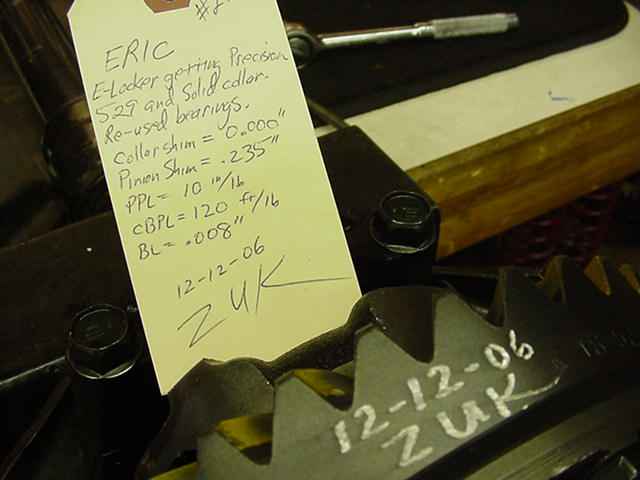 ERIC
E-Locker getting Precision
529 and Solid collar.
Re-used bearings.
Collar shim = 0.000"
Pinion Shim = .235"
PPL = 10 in/lb
CBPL = 120 ft/lb
BL = .008"
12-12-06
ZUK
12-12-06
ZUK